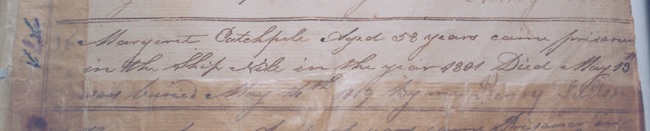 Margaret Catchpole Aged 58 years came prisoner
in the Ship Nile in the year 1801 Died May 13th
was buried May 14th 1819 by me Henry Fulton
came Prisoner in